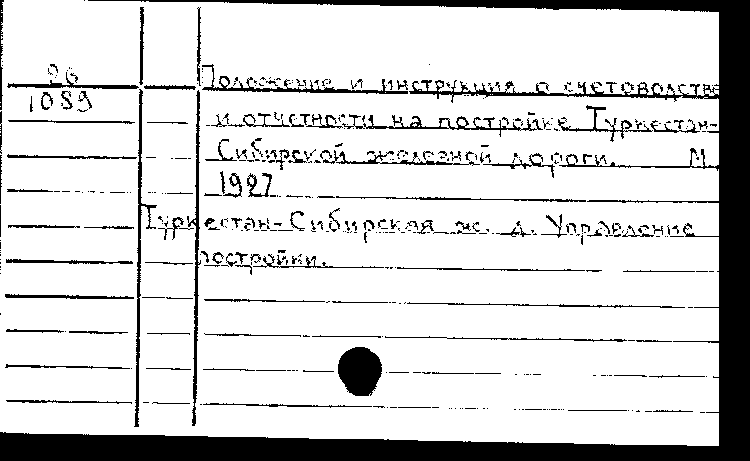 26
1089
Положение и инструкция о счетоводстве
и отчетности на постройке Туркестан-
Сибирской железной дороги. М.,
1927
Туркестан-Сибирская ж. д. Управление
постройки.